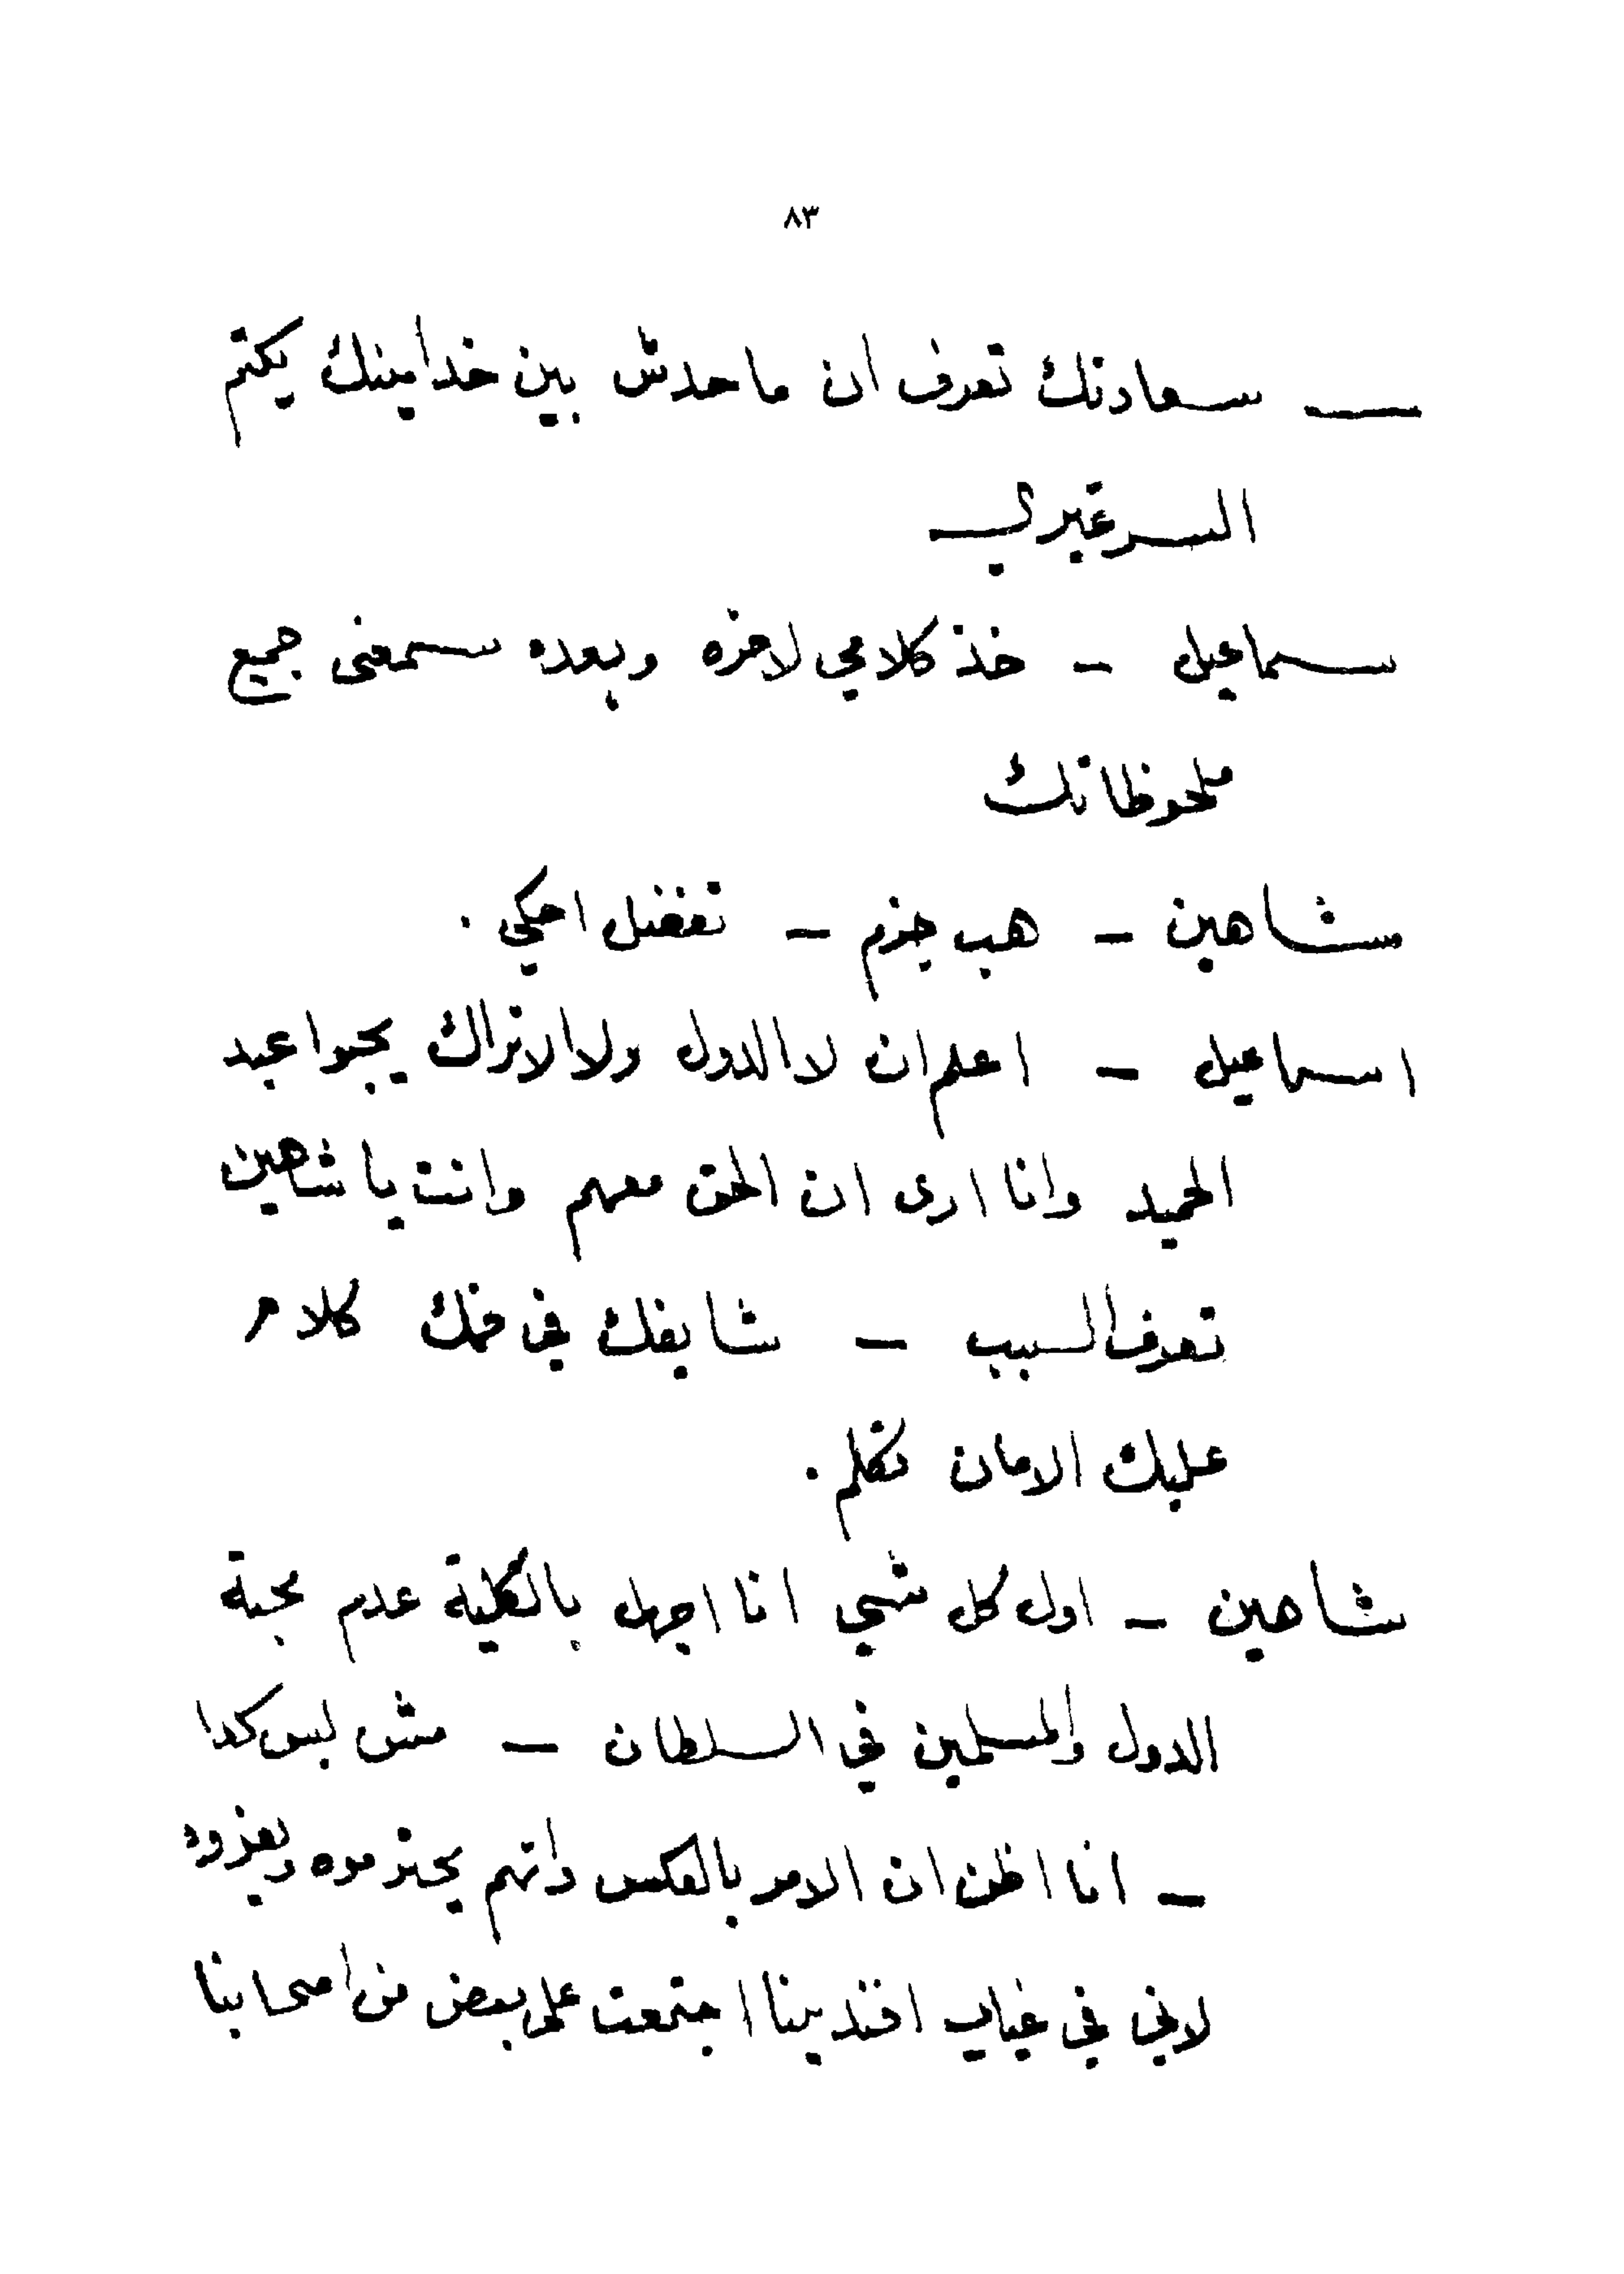 ٨٣
— سعادتك تعرف ان ما حدش بين خدامينك يكتم
السر غيري
سماعيل – خذ كلامي لاخره وبعده سمعنى جميع
ملحوظاتك
شاهين – هب جزم – تفضل احكي .
اسماعيل – اعلم ان لا الدول ولا الاتراك يحبوا عبد
الحميد وانا ارى ان الحق معهم وانت يا شاهين
تعرف السبب – شايفك في فمك كلام
عليك الامان تكلم .
شاهين – اول كل شيي انا اجهل بالكلية عدم محبة
الدول والمسلمين في السلطان – مش بس كدا
– انا اظن ان الامر بالعكس وانهم يحترموه ويعزوه
لاني في غياب افندينا اجتمعت على بعض من اصحابنا